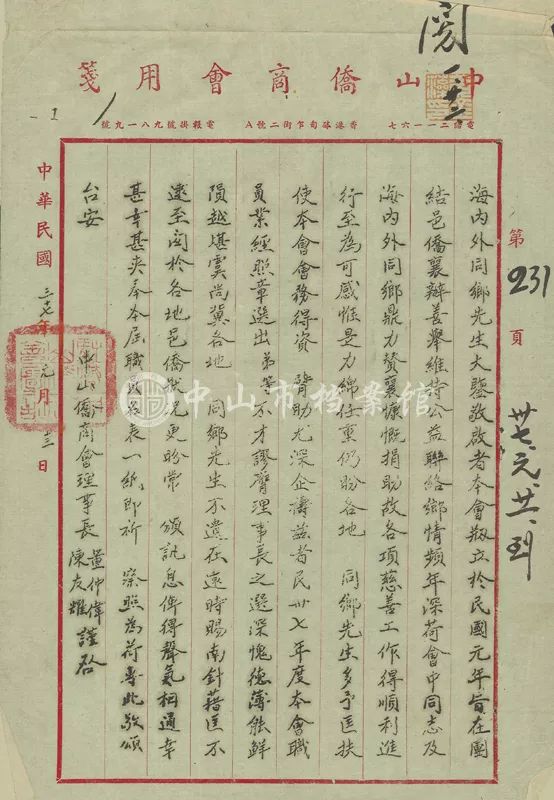 閱
一.廿二
中山僑商會用箋
電話二一一六七
香港砵甸乍街二號A
電報掛號九八一九號
-1
第231頁
卅七.元.廿一.到
海內外同鄉先生大鑒敬啟者本會刱立於民國元年旨在團
結邑僑襄辦善舉維持公益聯絡鄉情頻年深荷會中同志及
海內外同鄉鼎力贊襄慷慨捐助故各項慈善工作得順利進
行至為可感惟是力綿任重仍盼各地　同鄉先生多予匡扶
使本會會務得資　臂助尤深企禱茲者民卅七年度本會職
員業經照章選出弟等不才謬膺理事長之選深愧德薄能鮮
隕越堪虞尚冀各地　同鄉先生不遺在遠時賜南針藉匡不
逮至關於各地邑僑狀況更盼常　頒訊息俾得聲氣相通幸
甚幸甚夾奉本屆職員名表一紙即祈　察照為荷專此敬頌
台安
中山僑商會理事長
董仲偉
陳友耀
謹啟
中華民國三十七年元月十三日
中山市档案馆